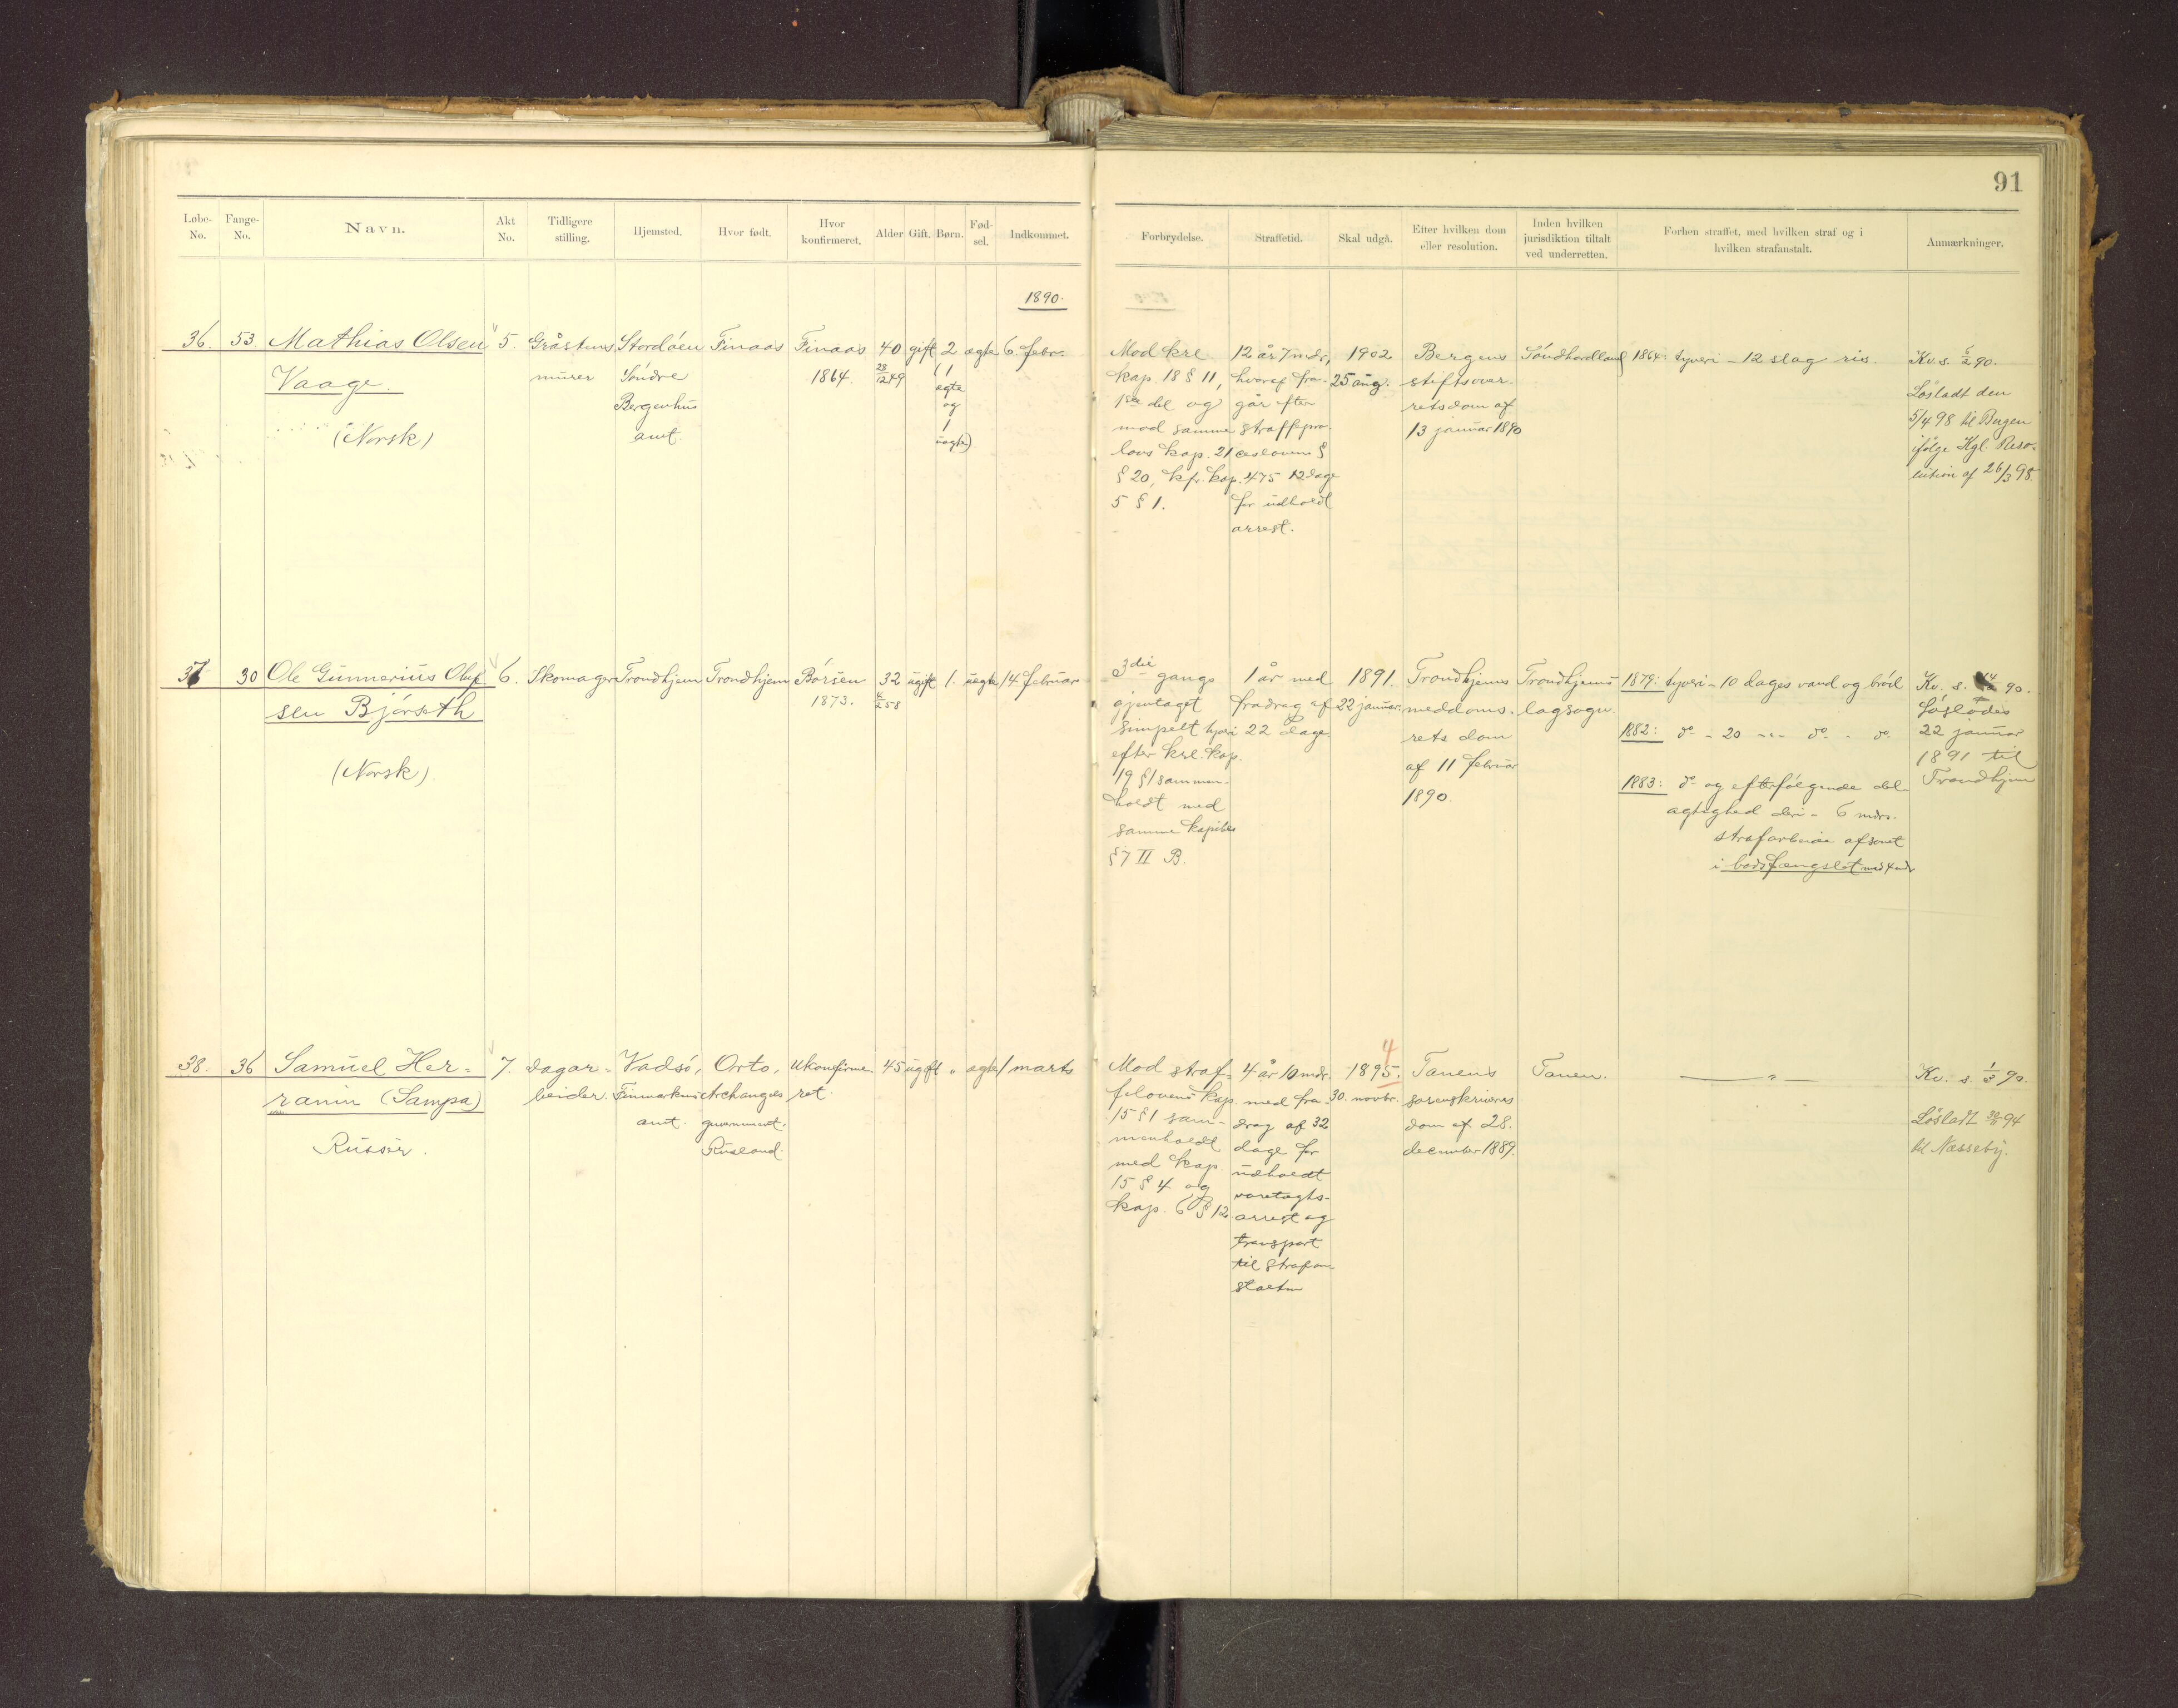 91
Løbe-No. Fange-No. Navn. Akt No. Tidligere stilling. Hjemsted. Hvor født. Hvor konfirmeret. Alder Gift. Børn. Fødsel. Indkommet.
Forbrydelse. Straffetid. Skal udgå. Efter hvilken dom eller resolution. Inden hvilken jurisdiktion tiltalt ved underretten. Forhen straffet, med hvilken straf og i hvilken strafanstalt. Anmærkninger.
1890.
36. 53. Mathias Olsen
Vaage.
(Norsk)
5.
Gråstens
murer
Stordøen
Søndre
Bergenhus
amt.
Finaas
Finaas
1864.
40
28/12 49
gift
2
(1
ægte
og
1
uægte)
ægte
6. febr.
Mod krl.
kap. 18 § 11,
1ste del og
mod samme
lovs kap. 21
§ 20, kfr. kap.
5 § 1.
12 år 7 mdr,
hvoraf fra-
går efter
straffepro-
ceslovens §
475 12 dage
for udholdt
arrest.
1902
25 aug.
Bergens
stiftsover-
retsdom af
13 januar 1890
Søndhordland
1864: tyveri – 12 slag ris.
Kv. s. 6/2 90.
Løsladt den
5/4 98 til Bergen
ifølge Kgl. Reso-
lution af 26/3 98.
37 30 Ole Gunnerius Oluf
sen Bjørseth
(Norsk)
6.
Skomager
Trondhjem
Trondhjem
Børsen
1873.
32
4/2 58
ugift
1.
uægte
14 februar
3die gangs
gjentaget
simpelt tyveri
efter krl. kap.
19 § 1 sammen-
holdt med
samme kapitels
§ 7 II B.
1 år med
fradrag af
22 dage.
1891.
22 januar.
Trondhjems
meddoms-
rets dom
af 11 februar
1890.
Trondhjems
lagsogn.
1879: tyveri – 10 dages vand og brød
1882: do – 20 -"- do - do
1883: do og efterfølgende del
agtighed deri – 6 mdrs.
strafarbeide afsonet
i bodsfængslet med 4 mdr
Kv. s. 90.
Løslodes
22 januar
1891 til
Trondhjem
38. 36 Samuel Her-
ranin (Sampa)
Russer.
7.
Dagar-
beider.
Vadsø,
Finmarkens
amt.
Orto,
Archangels
guvernement.
Rusland.
Ukonfirme-
ret.
45
ugift
"
ægte
1 marts
Mod straf-
felovens kap
15 § 1 sam-
menholdt
med kap
15 § 4 og
kap. 6 § 12
4 år 10 mdr.
med fra-
drag af 32
dage for
udholdt
varetægts-
arrest og
transport
til strafan-
stalten
4
1895.
30. novbr.
Tanens
sorenskriveres
dom af 28.
december 1889.
Tanen.
— " —
Kv. s. 1/3 90.
Løsladt 30/11 94
til Næsseby.